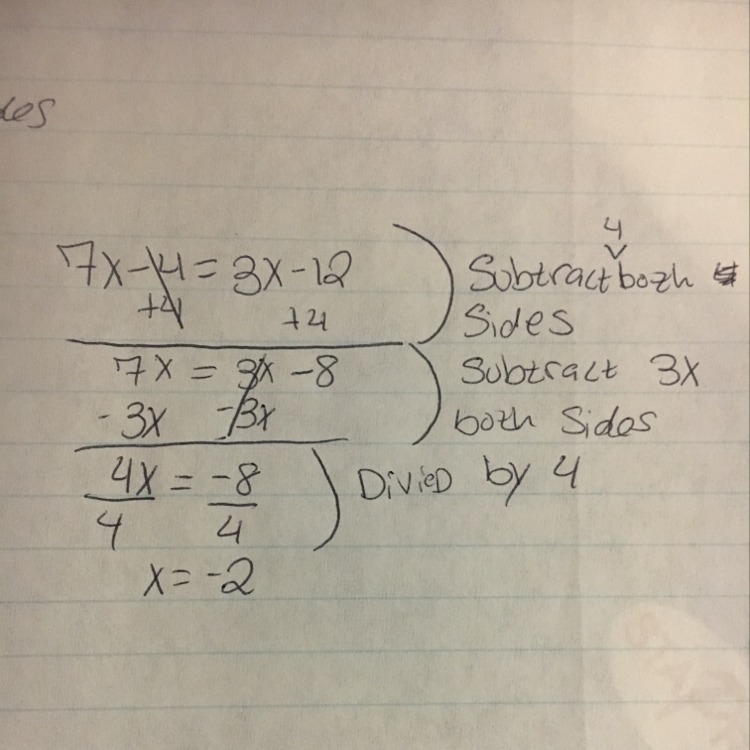 des
4
7x-4 = 3x-12 Subtract both
+4 +4 Sides
7x = 3x -8 Subtract 3x
-3x -3x both Sides
4x = -8 Divied by 4
4 4
x = -2